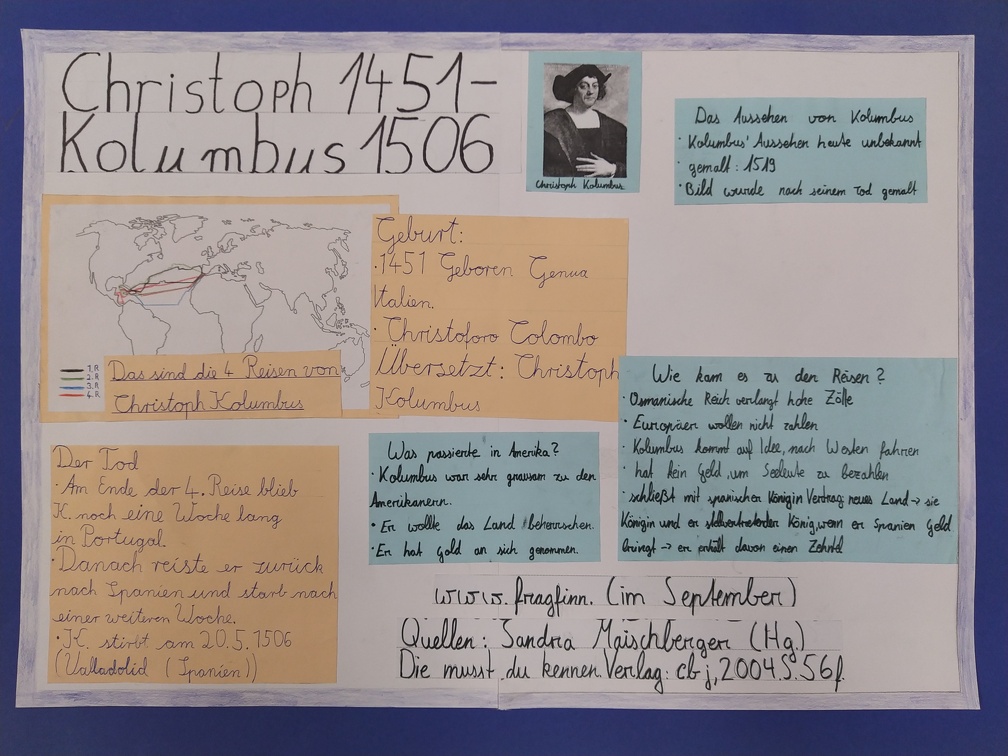 Christoph 1451-
Kolumbus 1506
Christoph Kolumbus
Das Aussehen von Kolumbus
· Kolumbus' Aussehen heute unbekannt
· gemalt: 1519
· Bild wurde nach seinem Tod gemalt
1.R
2.R
3.R
4.R
Das sind die 4 Reisen von
Christoph Kolumbus
Geburt:
· 1451 Geboren Genua
Italien.
· Christoforo Colombo
Übersetzt: Christoph
Kolumbus
Wie kam es zu den Reisen?
· Osmanische Reich verlangt hohe Zölle
· Europäer wollen nicht zahlen
· Kolumbus kommt auf Idee, nach Westen fahren
· hat kein Geld, um Seeleute zu bezahlen
· schließt mit spanischer Königin Vertrag, neues Land → sie
Königin und er stellvertretender König, wenn er Spanien Geld
bringt → er erhält davon einen Zehntel
Der Tod
· Am Ende der 4. Reise blieb
K. noch eine Woche lang
in Portugal.
· Danach reiste er zurück
nach Spanien und starb nach
einer weiteren Woche.
· K. stirbt am 20.5.1506
(Valladolid (Spanien))
Was passierte in Amerika?
· Kolumbus war sehr grausam zu den
Amerikanern.
· Er wollte das Land beherrschen.
· Er hat Gold an sich genommen.
www.fragfinn. (im September)
Quellen: Sandra Maischberger (Hg.)
Die musst du kennen. Verlag: cbj, 2004. S. 56f.